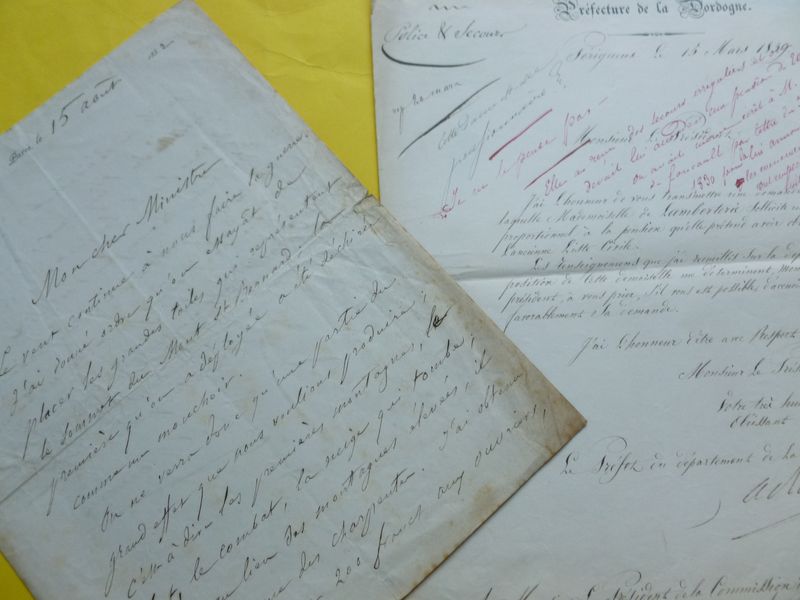 Paris le 15 août
Mon cher Ministre
Le vent continue à nous faire la guerre.
J'ai donné ordre qu'on essayât de
placer les grandes toiles qui représentent
le sommet du Mont St Bernard; la
première qu'on a déployée a été déchirée
comme un mouchoir.
On ne verra donc qu'une partie du
grand effet que nous voulions produire;
c'est à dire les premières montagnes, le
le combat, la neige qui tombe;
au lieu des montagnes élevées, il
des charpentes. J'ai obtenu
200 francs aux ouvriers,
Préfecture de la Dordogne.
Police & Secours
Périgueux le 15 Mars 1839
rep. 20 mars
Cette Dame
pensionnaire?
Je ne le pense pas.
Elle a reçu des secours irréguliers et
devait lui
on avait écrit à M.
de foucault par lettre du
1830 pour lui annoncer
Monsieur Le Président
J'ai L'honneur de vous transmettre une demande
laquelle Mademoiselle de Lamberterie Sollicite un
proportionné à la pension qu'elle prétend avoir
L'ancienne Liste Civile.
Les Renseignemens que j'ai recueillis sur la
position de Cette demoiselle me déterminent, Monsieur
président, à vous prier, S'il vous est possible, d'accueillir
favorablement Sa demande.
J'ai L'honneur d'être avec Respect
Monsieur Le Président
Votre très humble
Obéissant
Le Préfet du département de la
Le Président de la Commission